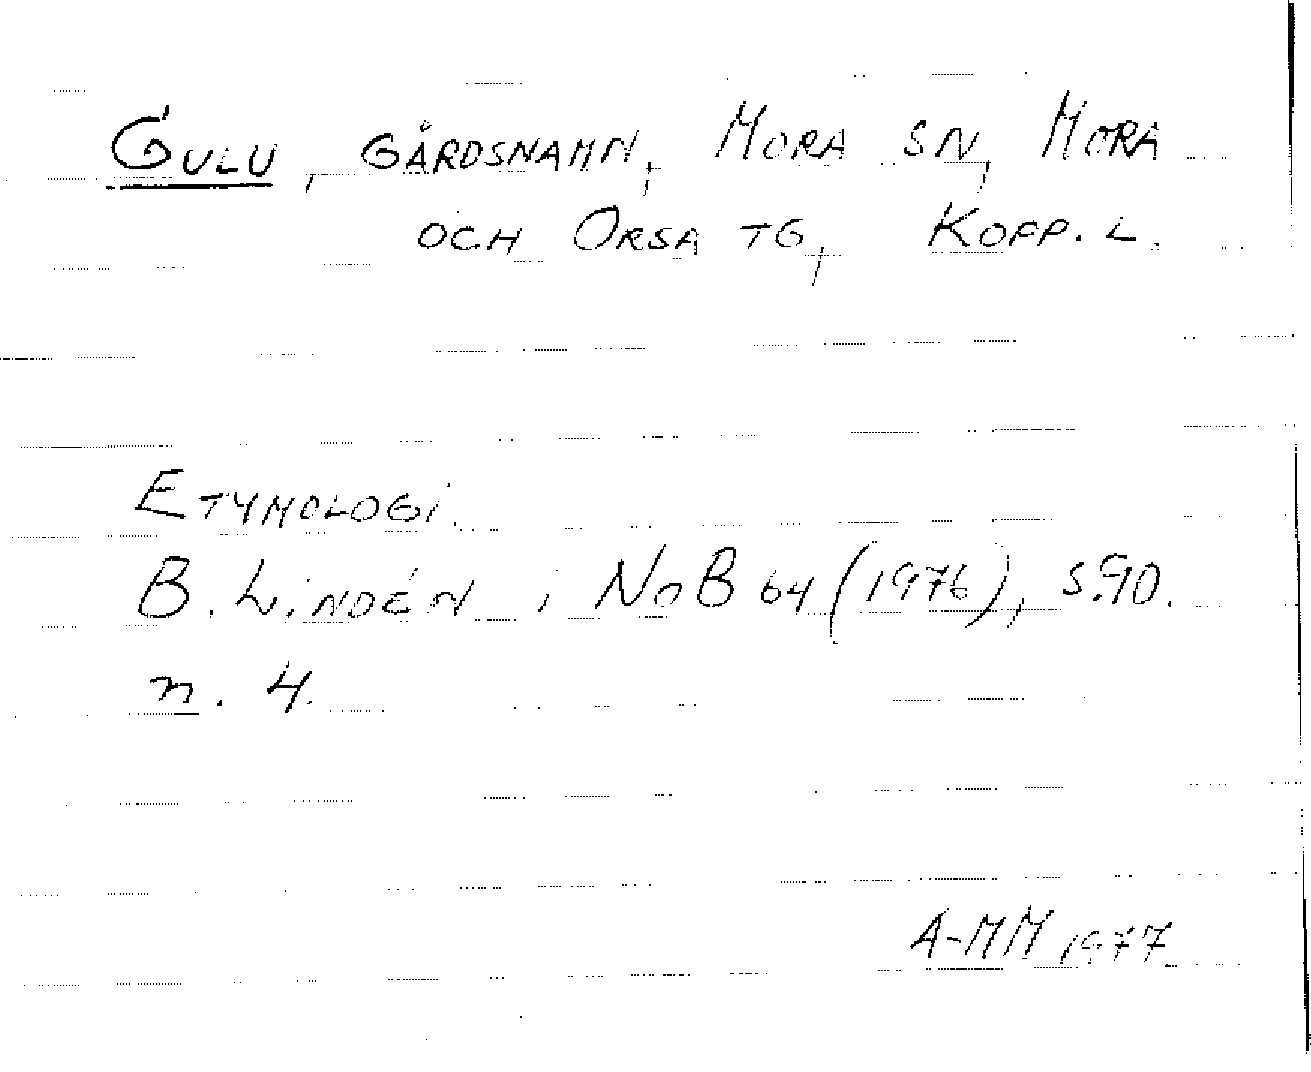 GULU, GÅRDSNAMN, MORA SN, MORA
OCH ORSA TG, KOPP. L.
ETYMOLOGI.
B. LINDÉN i NoB 64 (1976), S. 90.
n. 4.
A-MM 1977